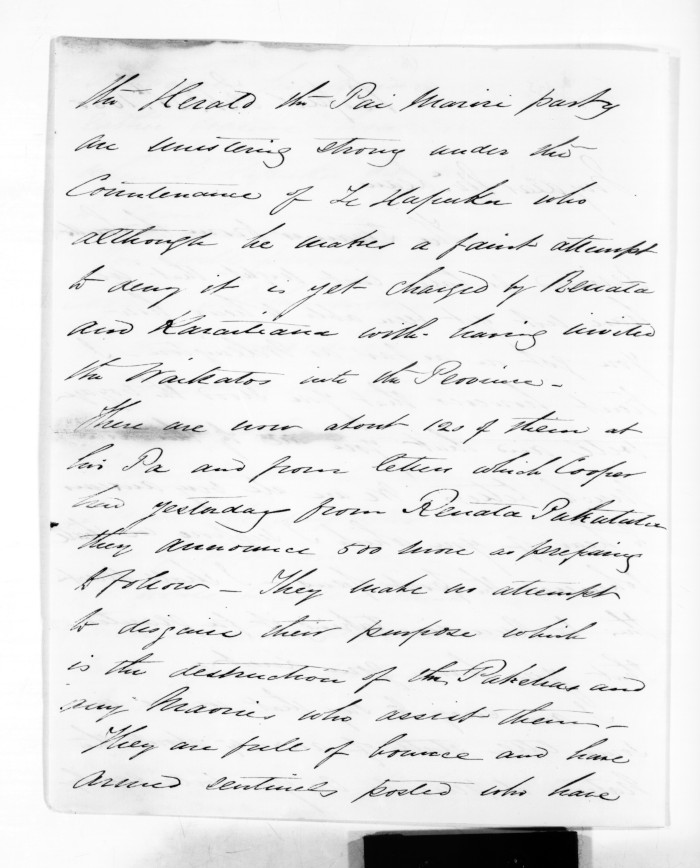 the Herald the Pai Marire party
are mustering strong under the
Countenance of Te Hapuku who
although he makes a faint attempt
to deny it is yet charged by Renata
and Karaitiana with having invited
the Waikatos into the Province –
There are now about 120 of them at
his Pa and from letters which Cooper
had yesterday from Renata Pukututu
they announce 500 more as preparing
to follow – They make no attempt
to disguise their purpose which
is the destruction of the Pakehas and
any Maories who assist them –
They are full of bounce and have
armed sentinels posted who have